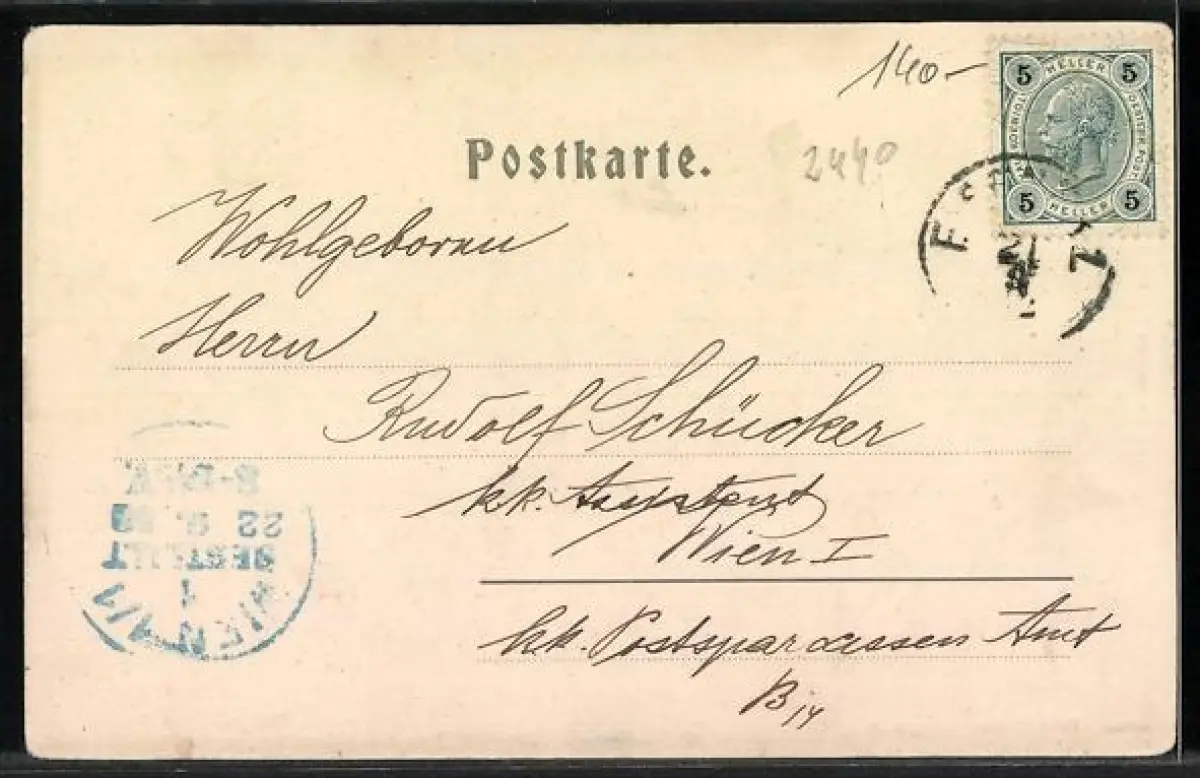 140-
5 HELLER 5
5 HELLER 5
Postkarte.
2440
Wohlgeboren
Herrn
Rudolf Schücker
kk. Assistent
Wien I
kk. Postsparcassen Amt
WIEN 1/1
1
BESTELLT
22. 9. 99